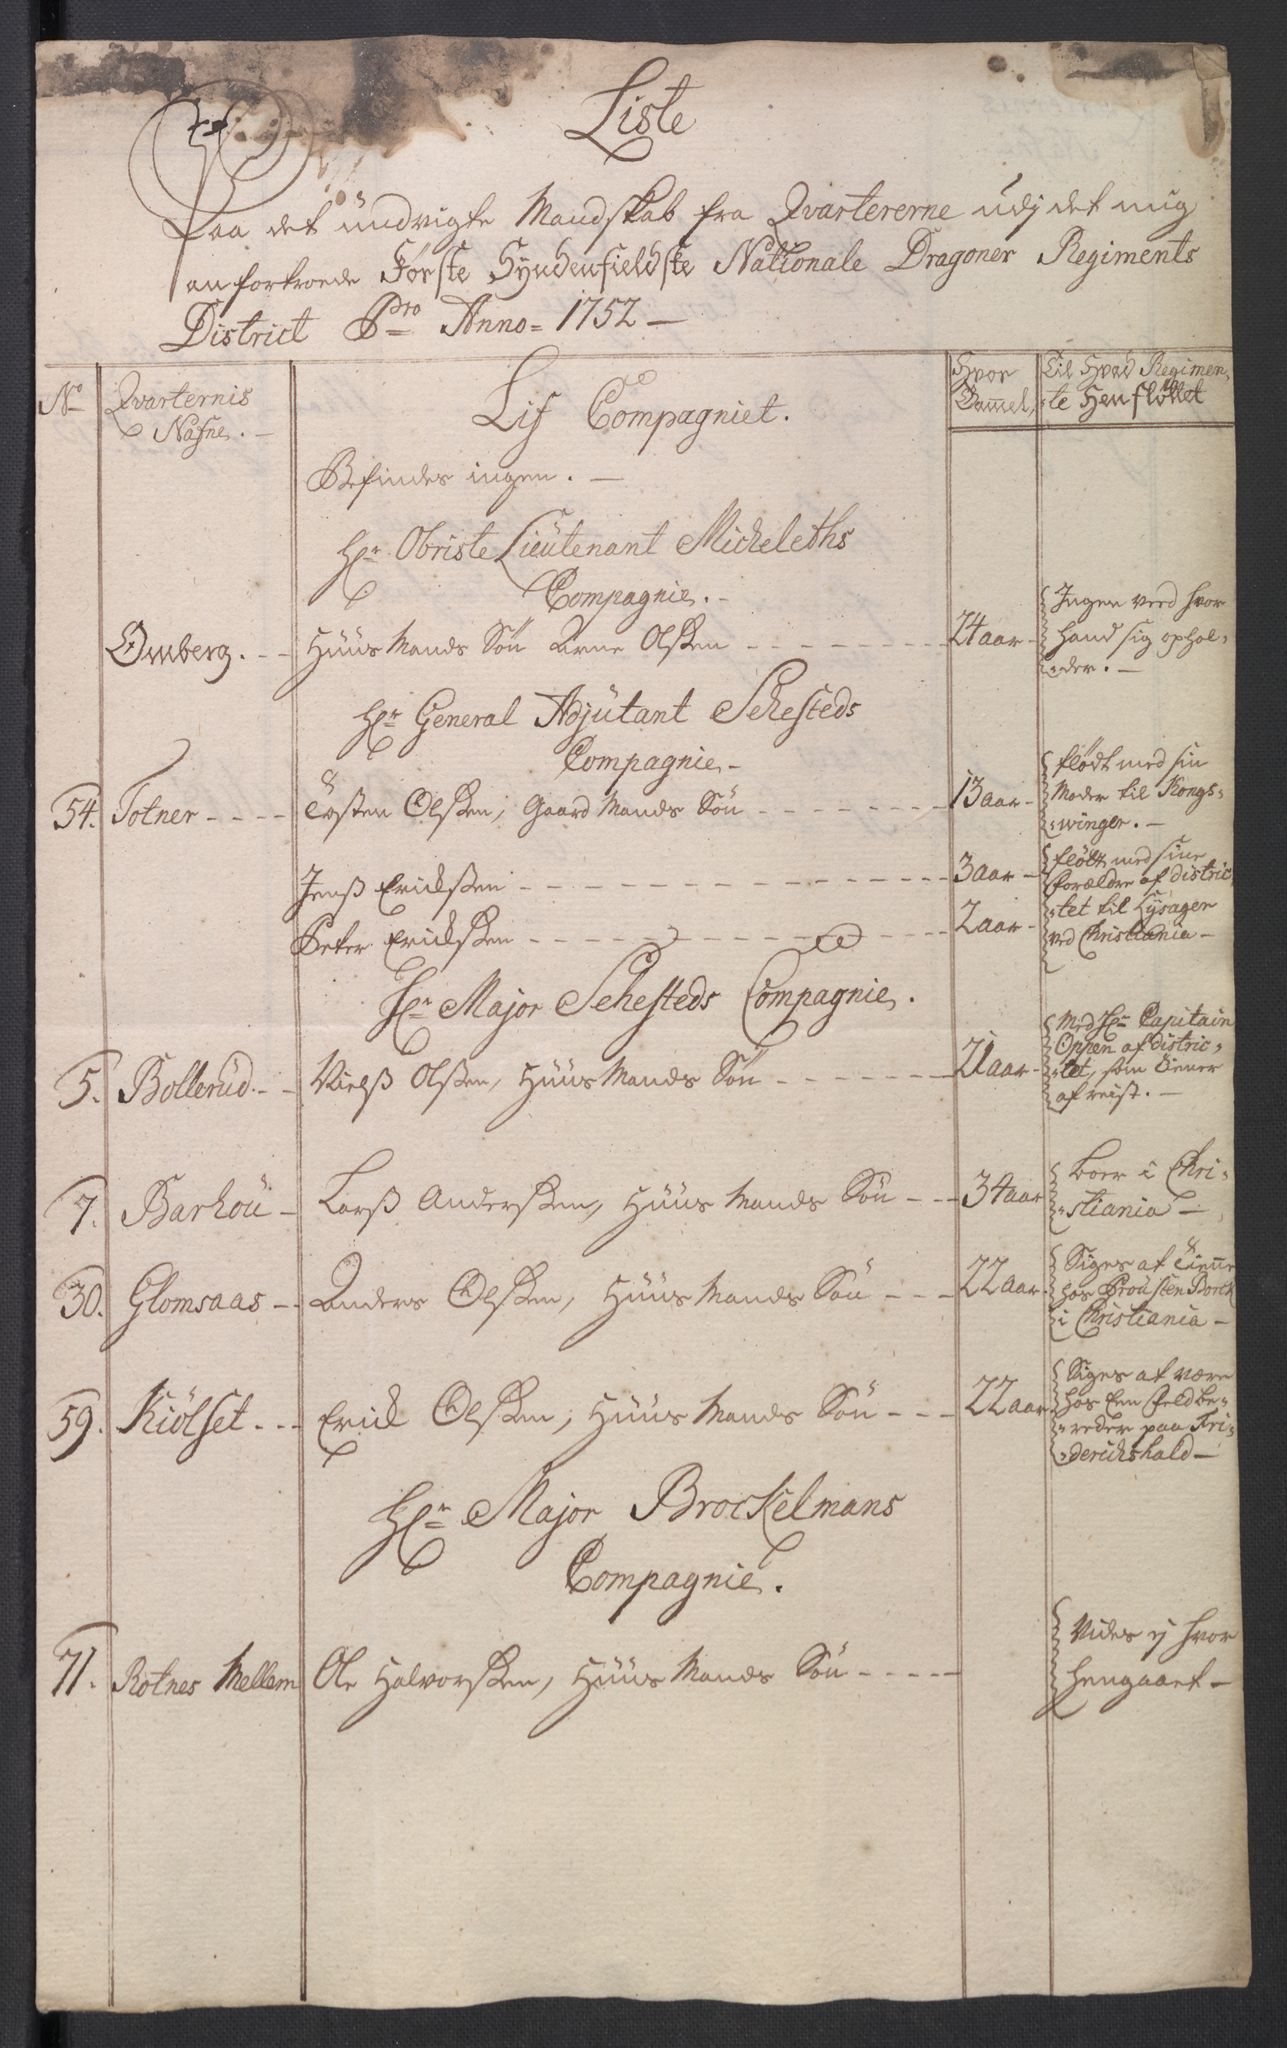 Liste
Paa det undvigte Mandskab fra Qvartererne udj det mig
anfortroede Første Syndenfieldske Nationale Dragoner Regiments
District Pro Anno= 1752 —
No
Qvarternis
Nafne. —
Lif Compagniet.
Hvor
Gammel,
Til Hvad Regimen„
„te Henfløttet
Befindes ingen. —
Hr Obriste Lieutenant Micheleths
Compagnie. —
Omberg. - - Huus Mands Sön Arne Olsen - - - - 24 aar -
Ingen veed hvor
hand sig ophol„
„der. —
Hr General Adjutant Sehesteds
Compagnie —
54. Totner - - - - Tosten Olsen, Gaard Mands Sön - - - - 13 aar -
flødt med sin
Moder til Kongs„
„winger. —
Jenss Ericksen - - - - 3 aar -
Peter Ericksen - - - - 2 aar -
fløtt med sine
forældre af distric
„tet til Lysager
ved Christiania —
Hr Major Sehesteds Compagnie.
5. Bollerud. - - Nielss Olsen, Huus Mands Sön - - - - 21 aar -
Med Hr Capitain
Oppen af distric„
„tet, som tiener
afreist. —
7. Barhou - Larss Andersen, Huus Mands Sön - - - 34 aar
boer i Chri„
„stiania —
30. Glomsaas - - Anders Olsen, Huus Mands Sön - - - 22 aar -
Siges at tienne
hos Prousten Borck
i Christiania —
59. Kiölset - - - Erick Olsen, Huus Mands Sön - - - 22 aar
Siges at være
hos Een feldbe„
„reder paa Fri„
„derichshald —
Hr Major Brockelmans
Compagnie.
71. Rotnes Mellem Ole Halvorsen, Huus Mands Sön - - - - -
Vides ej hvor
hengaaet —